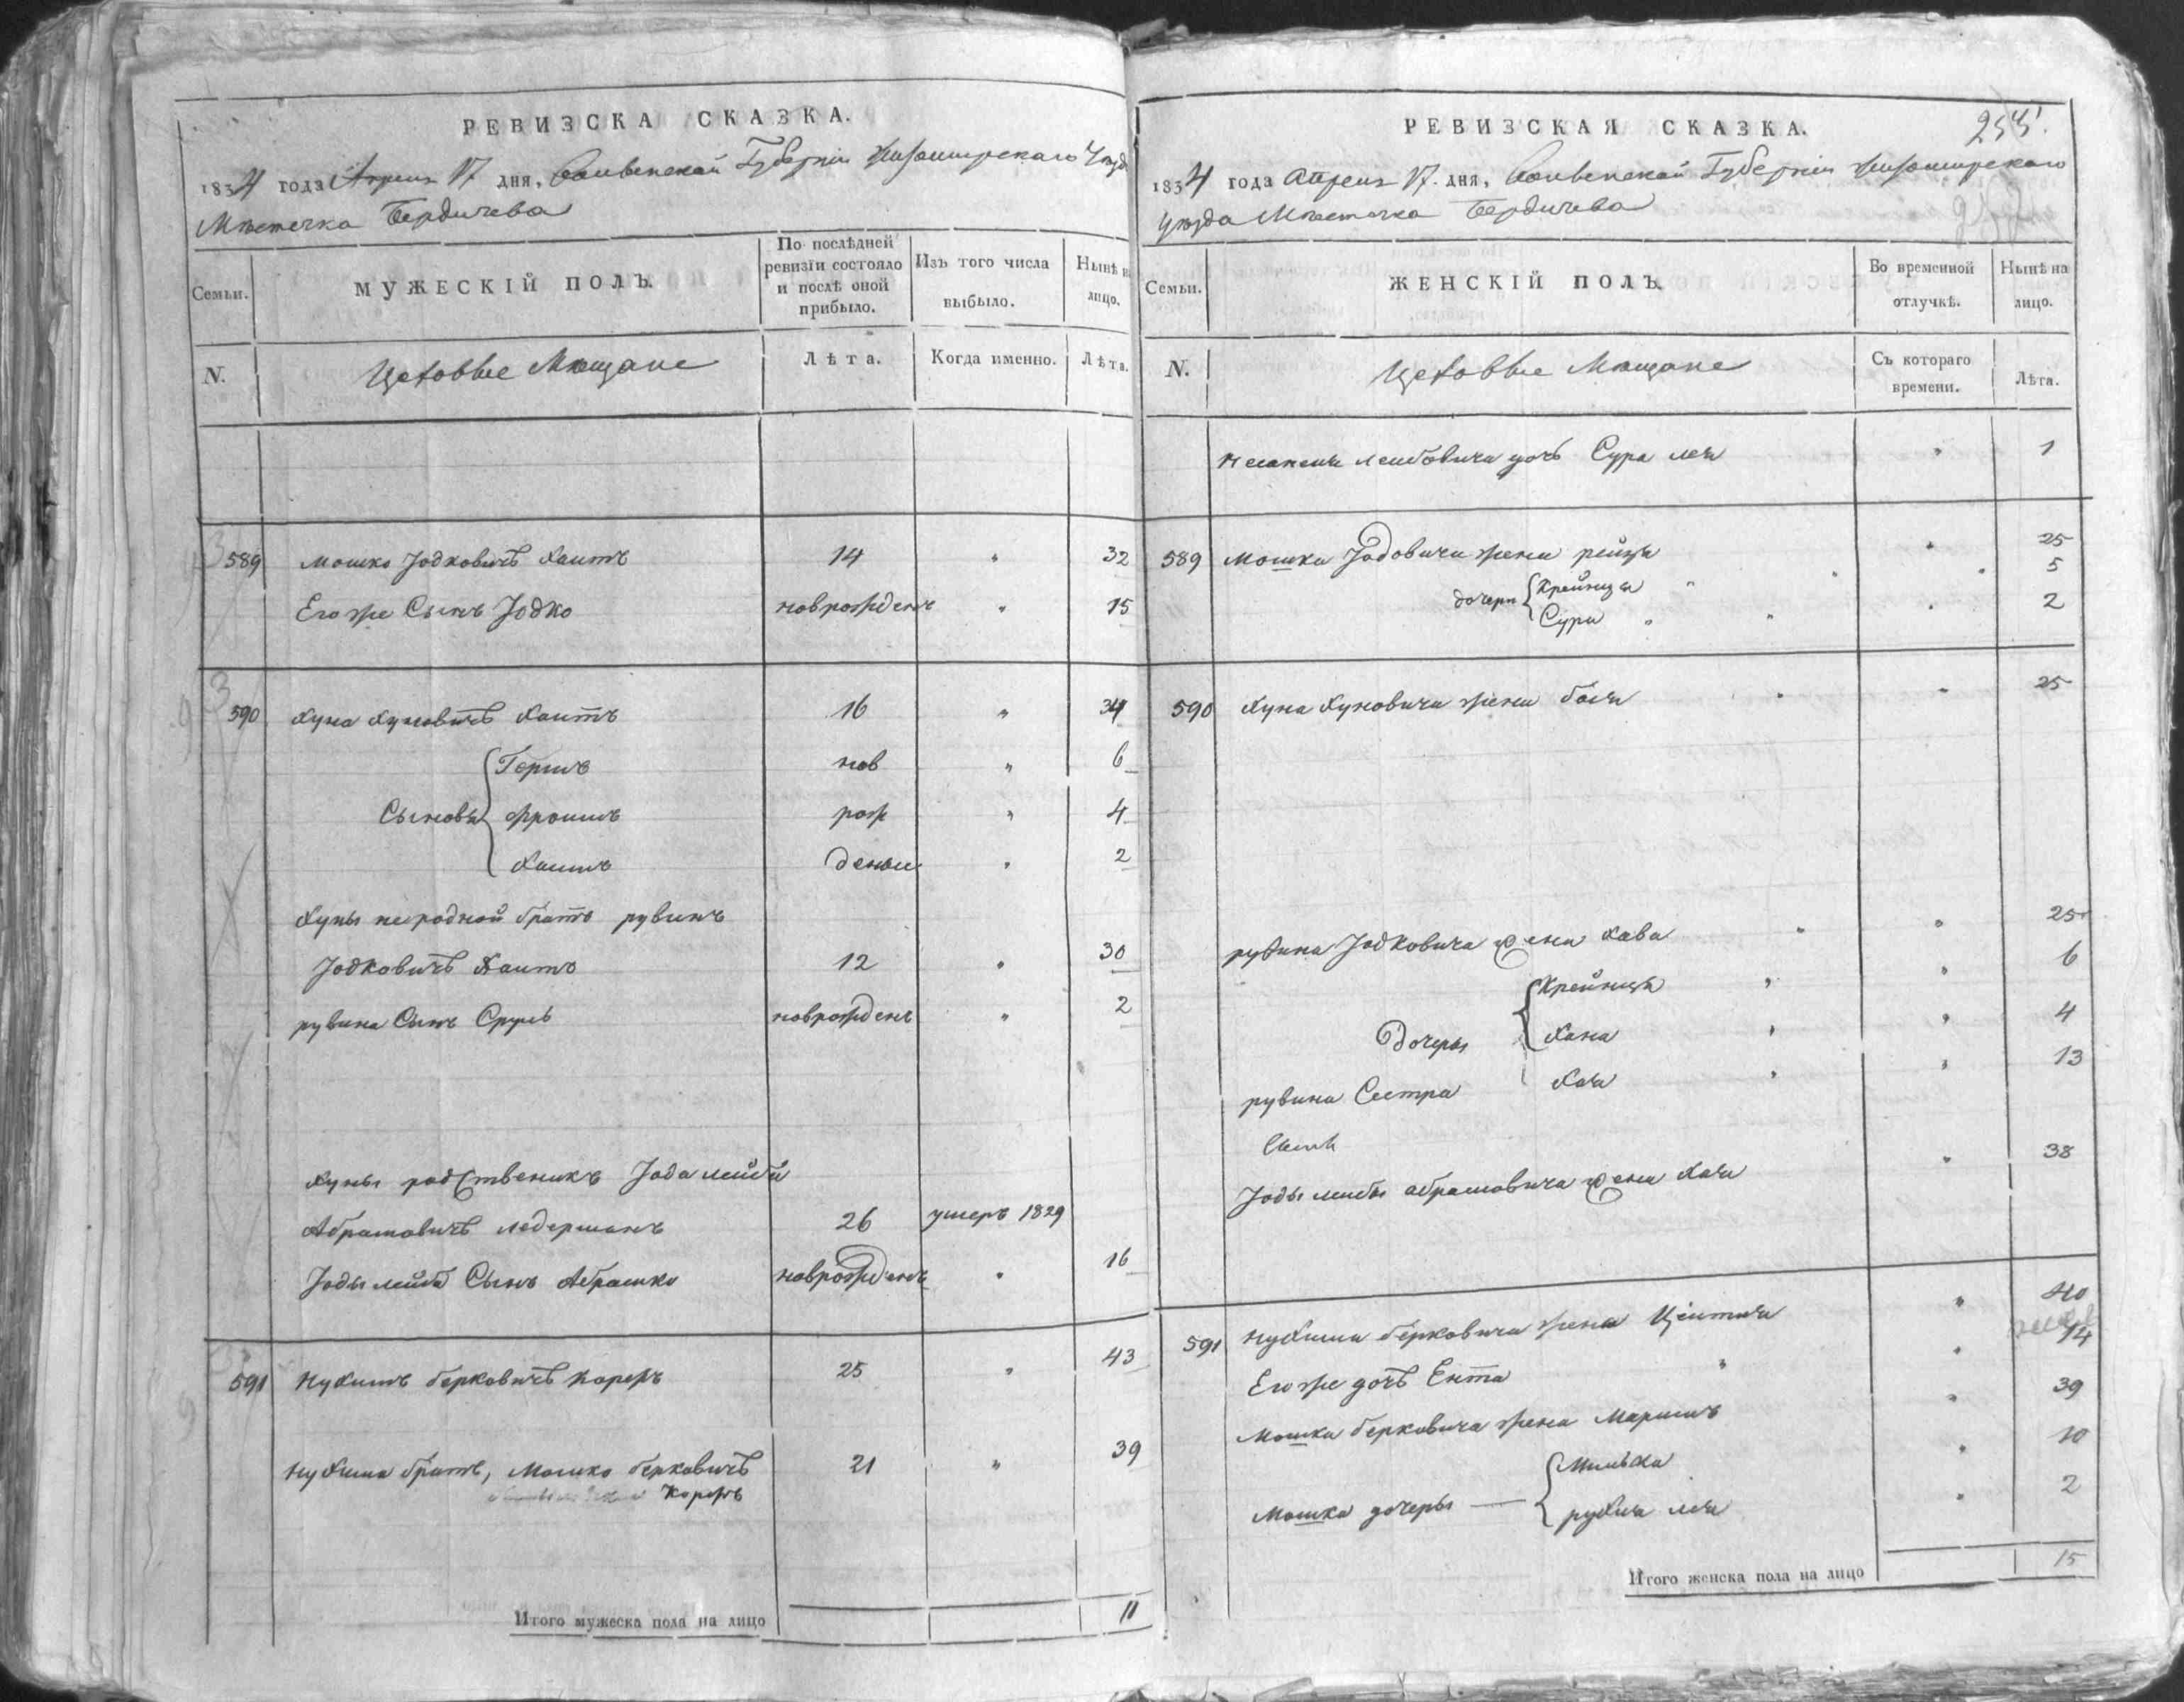 РЕВИЗСКА СКАЗКА.
1834 года Апреля 17 дня, Волынской Губернии Житомирского Уезд
Мѣстечка Бердичева
Семьи.
МУЖЕСКІЙ ПОЛЪ.
По послѣдней ревизіи состояло и послѣ оной прибыло.
Изъ того числа выбыло.
Нынѣ на лицо.
N.
Цеховые Мещане
Лѣта.
Когда именно.
Лѣта.
589 Мошко Іодковичъ Хаитъ 14 " 32
Его же Сынъ Іодко новрожденъ " 15
590 Хуна Хуновичъ Хаитъ 16 " 34
Гершъ нов " 6
Сыновья Фроимъ рож " 4
Хаимъ деные " 2
Хуны неродной братъ рувинъ
Іодковичъ Хаитъ 12 " 30
рувина Сынъ Сруль новрожденъ " 2
Хуны родственикъ Іода лейба
Абрамовичъ ледерманъ 26 умеръ 1829
Іоды лейба Сынъ Абрамко новрожденъ " 16
591 Нухимъ берковичъ 25 " 43
Нухима братъ, Мошко берковичъ 21 " 39
Итого мужеска пола на лицо 11
РЕВИЗСКАЯ СКАЗКА.
1834 года Апреля 17. дня, Волынской Губернии Житомирского
уезда Мѣстечка Бердичева
Семьи.
ЖЕНСКІЙ ПОЛЪ.
Во временной отлучкѣ.
Нынѣ на лицо.
N.
Цеховые Мещане
Съ котораго времени.
Лѣта.
лейбовича дочь Сура лея " 1
589 Мошка Іодовича жена рейзя " 25
дочери Крейнця " 5
Сура " 2
590 Хуна Хуновича жена бася " 25
рувина Іодковича жена Хава " 25
Крейнця " 6
Дочеры Хана " 4
рувина Сестра Хая " 13
Іоды лейбы абрамовича жена Хая " 38
591 Нухима берковича жена " 40
Его же дочь Ента " 14
Мошка берковича жена Маримъ " 39
10
Мошка дочеры рухля лея " 2
Итого женска пола на лицо 15